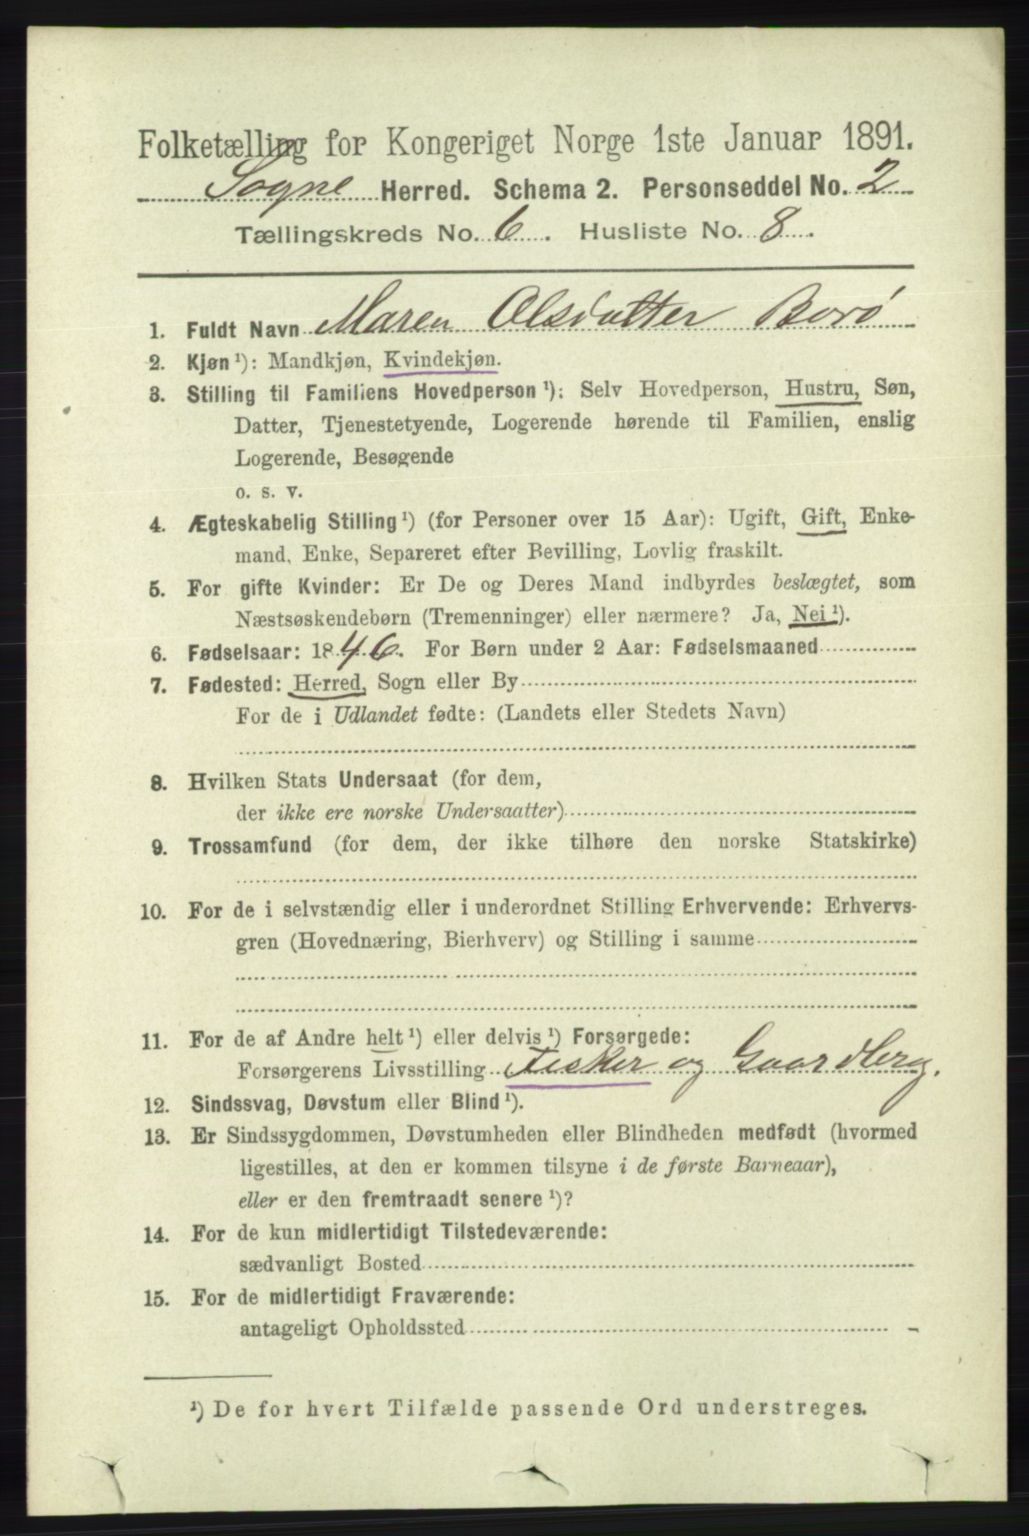 Folketælling for Kongeriget Norge 1ste Januar 1891.
Søgne Herred. Schema 2. Personseddel No. 2
Tællingskreds No. 6. Husliste No. 8.
1. Fuldt Navn Maren Olsdatter Borø
2. Kjøn ¹): Mandkjøn, Kvindekjøn.
3. Stilling til Familiens Hovedperson ¹): Selv Hovedperson, Hustru, Søn,
Datter, Tjenestetyende, Logerende hørende til Familien, enslig
Logerende, Besøgende
o. s. v.
4. Ægteskabelig Stilling ¹) (for Personer over 15 Aar): Ugift, Gift, Enke-
mand, Enke, Separeret efter Bevilling, Lovlig fraskilt.
5. For gifte Kvinder: Er De og Deres Mand indbyrdes beslægtet, som
Næstsøskendebørn (Tremenninger) eller nærmere? Ja, Nei ¹).
6. Fødselsaar: 1846. For Børn under 2 Aar: Fødselsmaaned
7. Fødested: Herred, Sogn eller By
For de i Udlandet fødte: (Landets eller Stedets Navn)
8. Hvilken Stats Undersaat (for dem,
der ikke ere norske Undersaatter)
9. Trossamfund (for dem, der ikke tilhøre den norske Statskirke)
10. For de i selvstændig eller i underordnet Stilling Erhvervende: Erhvervs-
gren (Hovednæring, Bierhverv) og Stilling i samme
11. For de af Andre helt ¹) eller delvis ¹) Forsørgede:
Forsørgerens Livsstilling Fisker og Gaardberg.
12. Sindssvag, Døvstum eller Blind ¹).
13. Er Sindssygdommen, Døvstumheden eller Blindheden medfødt (hvormed
ligestilles, at den er kommen tilsyne i de første Barneaar),
eller er den fremtraadt senere ¹)?
14. For de kun midlertidigt Tilstedeværende:
sædvanligt Bosted
15. For de midlertidigt Fraværende:
antageligt Opholdssted
¹) De for hvert Tilfælde passende Ord understreges.